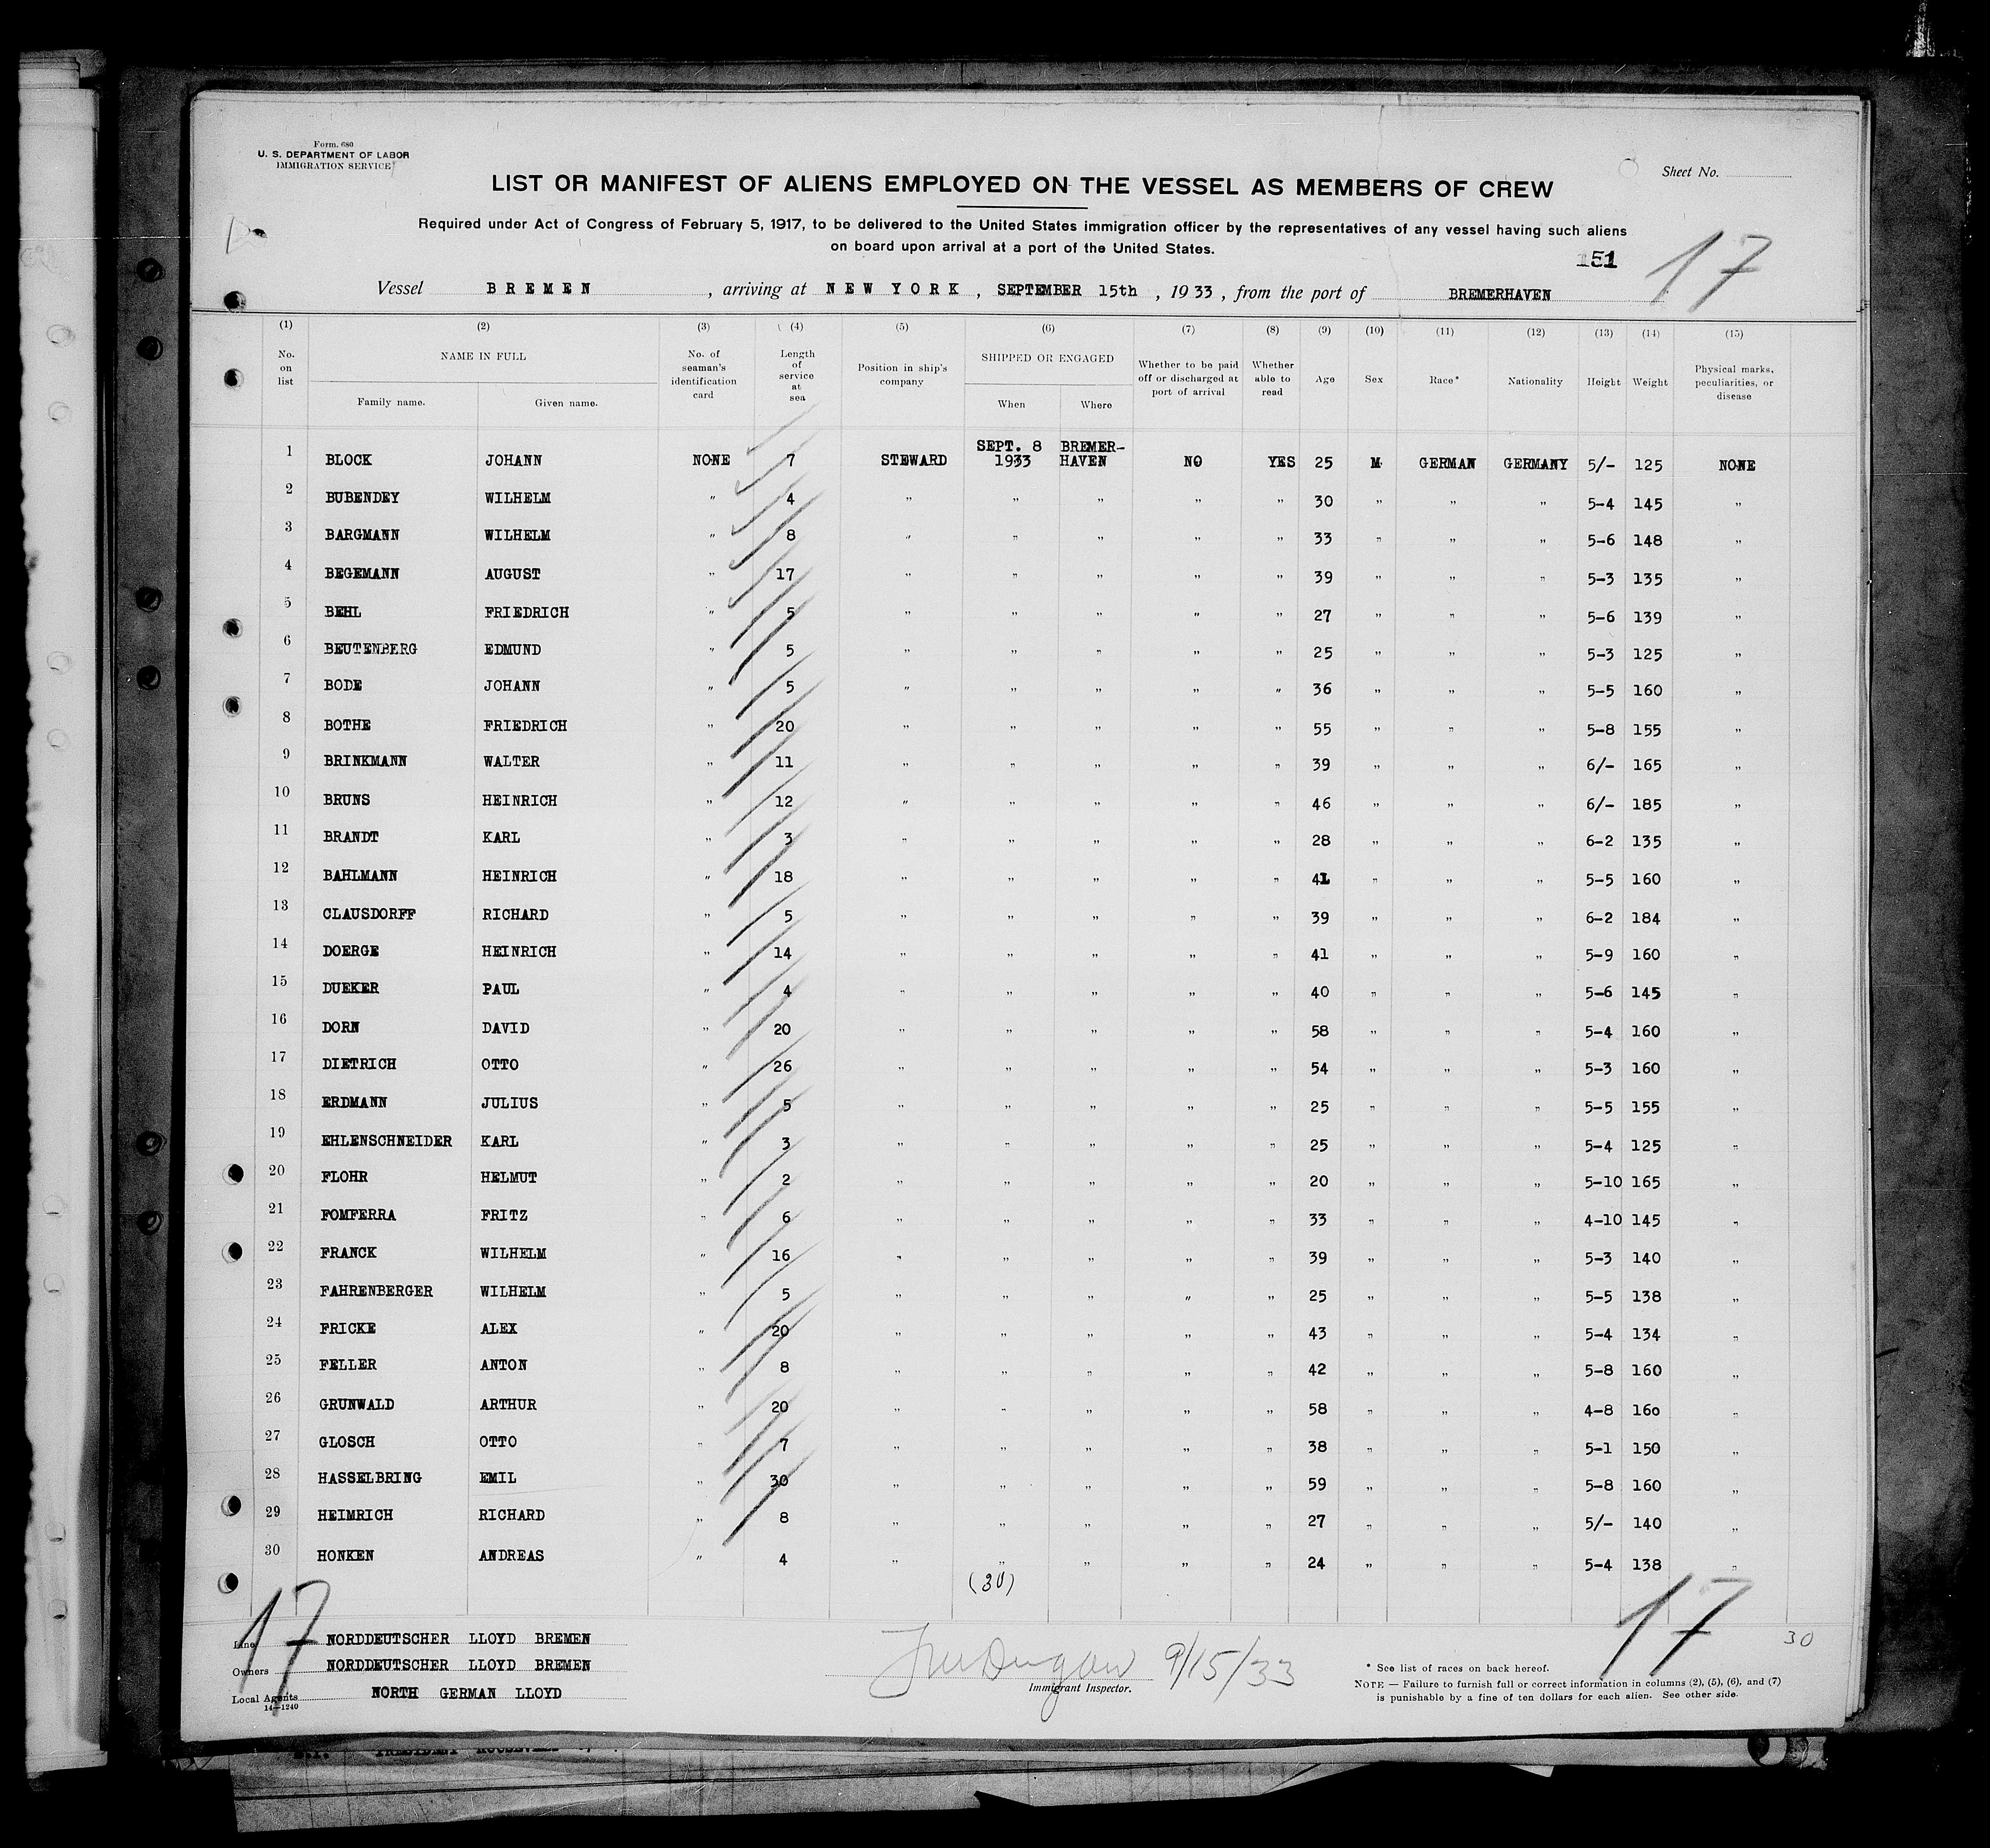 Form. 680
U. S. DEPARTMENT OF LABOR
IMMIGRATION SERVICE
Sheet No.
LIST OR MANIFEST OF ALIENS EMPLOYED ON THE VESSEL AS MEMBERS OF CREW
Required under Act of Congress of February 5, 1917, to be delivered to the United States immigration officer by the representatives of any vessel having such aliens
on board upon arrival at a port of the United States.
151 17
Vessel BREMEN , arriving at NEW YORK , SEPTEMBER 15th , 1933 , from the port of BREMERHAVEN
(1) (2) (3) (4) (5) (6) (7) (8) (9) (10) (11) (12) (13) (14) (15)
No. on list NAME IN FULL Family name. Given name. No. of seaman's identification card Length of service at sea Position in ship's company SHIPPED OR ENGAGED When Where Whether to be paid off or discharged at port of arrival Whether able to read Age Sex Race* Nationality Height Weight Physical marks, peculiarities, or disease
1 BLOCK JOHANN NONE 7 STEWARD SEPT. 8 1933 BREMER-HAVEN NO YES 25 M GERMAN GERMANY 5/- 125 NONE
2 BUBENDEY WILHELM " 4 " " " " " 30 " " " 5-4 145 "
3 BARGMANN WILHELM " 8 " " " " " 33 " " " 5-6 148 "
4 BEGEMANN AUGUST " 17 " " " " " 39 " " " 5-3 135 "
5 BEHL FRIEDRICH " 5 " " " " " 27 " " " 5-6 139 "
6 BEUTENBERG EDMUND " 5 " " " " " 25 " " " 5-3 125 "
7 BODE JOHANN " 5 " " " " " 36 " " " 5-5 160 "
8 BOTHE FRIEDRICH " 20 " " " " " 55 " " " 5-8 155 "
9 BRINKMANN WALTER " 11 " " " " " 39 " " " 6/- 165 "
10 BRUNS HEINRICH " 12 " " " " " 46 " " " 6/- 185 "
11 BRANDT KARL " 3 " " " " " 28 " " " 6-2 135 "
12 BAHLMANN HEINRICH " 18 " " " " " 41 " " " 5-5 160 "
13 CLAUSDORFF RICHARD " 5 " " " " " 39 " " " 6-2 184 "
14 DOERGE HEINRICH " 14 " " " " " 41 " " " 5-9 160 "
15 DUEKER PAUL " 4 " " " " " 40 " " " 5-6 145 "
16 DORN DAVID " 20 " " " " " 58 " " " 5-4 160 "
17 DIETRICH OTTO " 26 " " " " " 54 " " " 5-3 160 "
18 ERDMANN JULIUS " 5 " " " " " 25 " " " 5-5 155 "
19 EHLENSCHNEIDER KARL " 3 " " " " " 25 " " " 5-4 125 "
20 FLOHR HELMUT " 2 " " " " " 20 " " " 5-10 165 "
21 FOMFERRA FRITZ " 6 " " " " " 33 " " " 4-10 145 "
22 FRANCK WILHELM " 16 " " " " " 39 " " " 5-3 140 "
23 FAHRENBERGER WILHELM " 5 " " " " " 25 " " " 5-5 138 "
24 FRICKE ALEX " 20 " " " " " 43 " " " 5-4 134 "
25 FELLER ANTON " 8 " " " " " 42 " " " 5-8 160 "
26 GRUNWALD ARTHUR " 20 " " " " " 58 " " " 4-8 160 "
27 GLOSCH OTTO " 7 " " " " " 38 " " " 5-1 150 "
28 HASSELBRING EMIL " 30 " " " " " 59 " " " 5-8 160 "
29 HEIMRICH RICHARD " 8 " " " " " 27 " " " 5/- 140 "
30 HONKEN ANDREAS " 4 " " " " " 24 " " " 5-4 138 "
(30)
17 17
30
Line NORDDEUTSCHER LLOYD BREMEN
Owners NORDDEUTSCHER LLOYD BREMEN
Local Agents NORTH GERMAN LLOYD
14—1240
9/15/33
Immigrant Inspector.
* See list of races on back hereof.
NOTE — Failure to furnish full or correct information in columns (2), (5), (6), and (7)
is punishable by a fine of ten dollars for each alien. See other side.